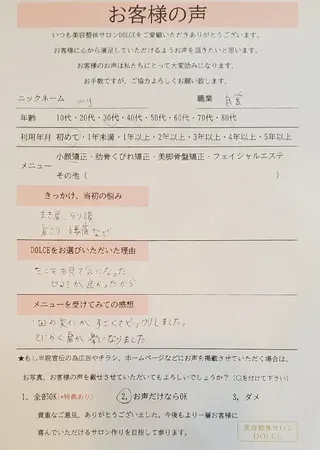 お客様の声
いつも美容整体サロンDOLCEをご愛顧いただきありがとうございます。
お客様に心から満足していただけるようお声を頂きたいと思います。
お客様のお声は私たちにとって大変励みになります。
お手数ですが、ご協力よろしくお願い致します。
ニックネーム my 職業 自営
年齢 10代・20代・30代・40代・50代・60代・70代・80代
利用年月 初めて・1年未満・1年以上・2年以上・3年以上・4年以上・5年以上
メニュー 小顔矯正・肋骨くびれ矯正・美脚骨盤矯正・フェイシャルエステ
その他( )
きっかけ、当初の悩み
まき肩、そり腰
肩こり、腰痛など
DOLCEをお選びいただいた理由
たこ を見て気になった
口コミが良かったから
メニューを受けてみての感想
1回の変化がすごくてビックリしました。
とにかく肩が楽になりました
★もし当院宣伝の為広告やチラシ、ホームページなどにお声を掲載させていただく場合は、
お写真、お客様の声を載せさせていただいてもよろしいでしょうか?(○を付けて下さい)
1. 全部OK(*特典あり) 2. お声だけならOK 3, ダメ
貴重なご意見、ありがとうございました。今後もより一層お客様に
喜んでいただけるサロン作りを目指して参ります。
美容整体サロン
DOLCE